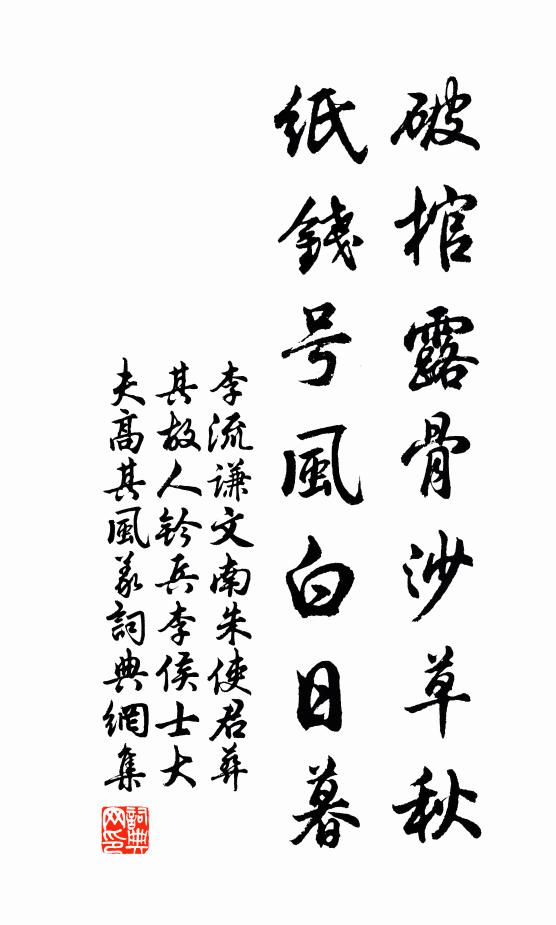 破棺露骨沙草秋
紙錢号風白日暮
李流謙文南朱使君葬
其故人鈐兵李侯士大
夫高其風義詞典網集
詞典网印